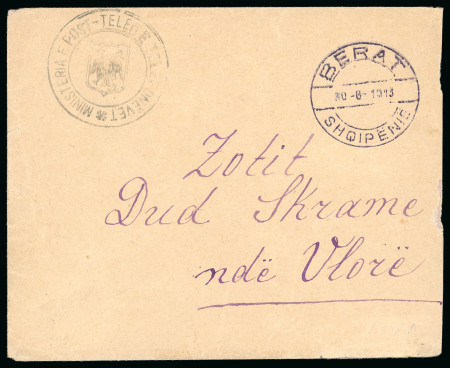 MINISTERIA E POST-TELEG E TELEFONEVET
BERAT
30-6-1913
SHQIPENIE
Zotit
Dud Skrame
ndë Vlorë